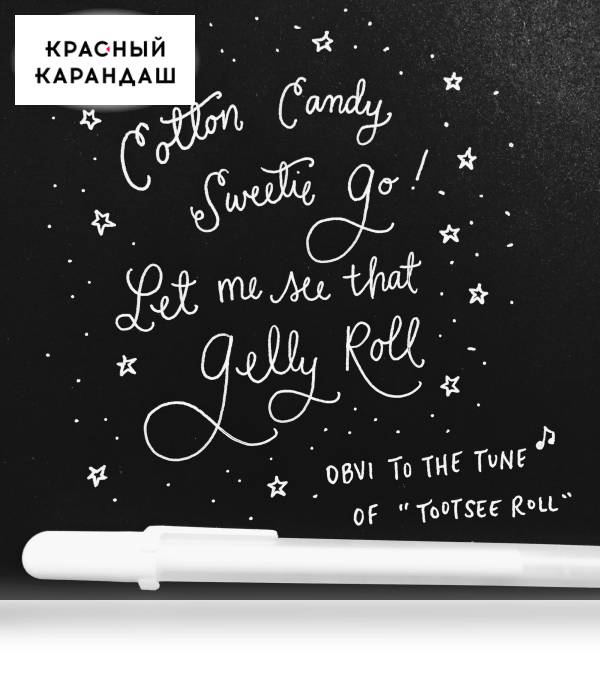 КРАСНЫЙ
КАРАНДАШ
Cotton Candy
Sweetie go!
Let me see that
gelly Roll
OBVI TO THE TUNE
OF "TOOTSEE ROLL"